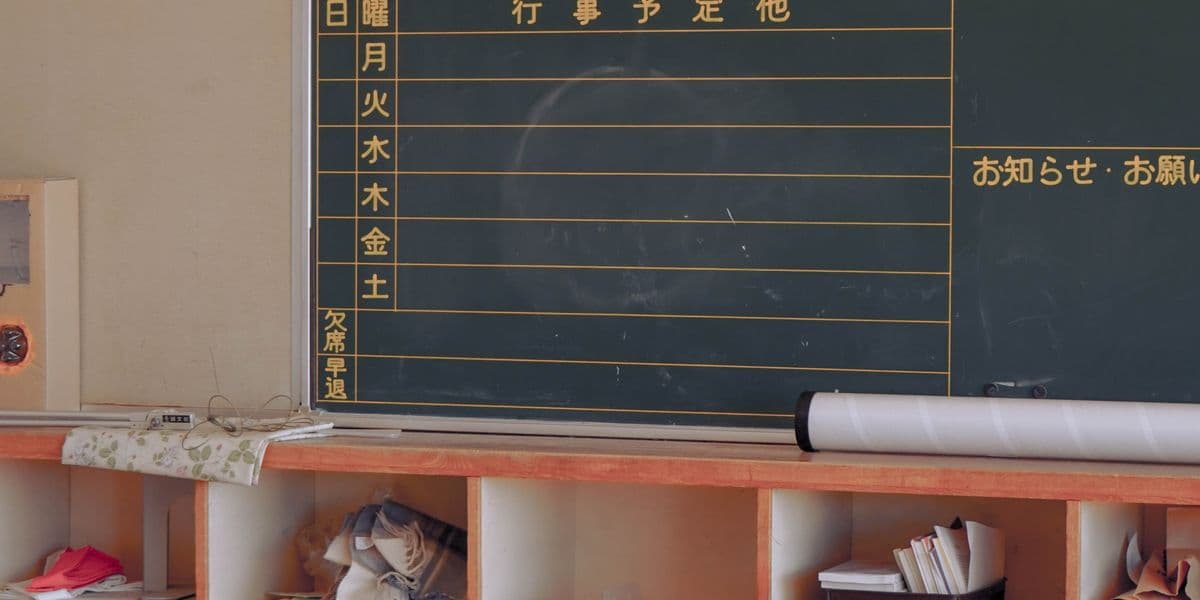 日 曜 行事予定他
月
火
水
木
金
土
欠席
早退
お知らせ・お願い